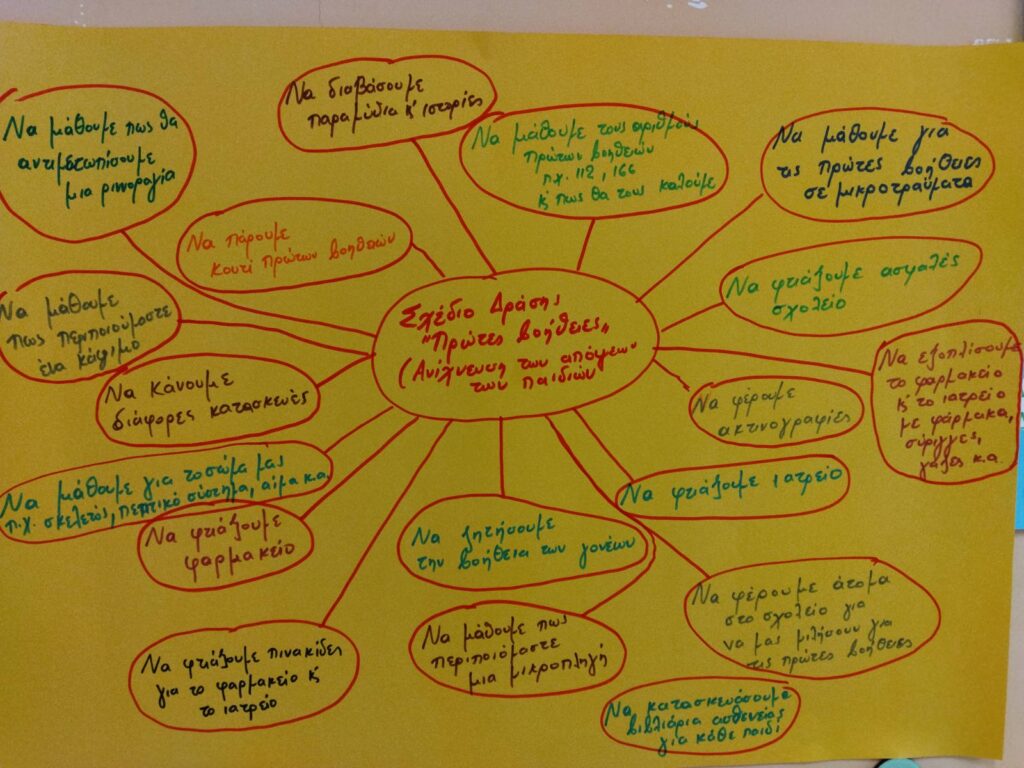 Να μάθουμε πως θα
αντιμετωπίσουμε
μια ρινοραγία
Να διαβάσουμε
παραμύθια κ' ιστορίες
Να μάθουμε τους αριθμούς
πρώτων βοηθειών
π.χ. 112, 166
κ' πως θα τους καλούμε
Να μάθουμε για
τις πρώτες βοήθειες
σε μικροτραύματα
Να πάρουμε
κουτί πρώτων βοηθειών
Σχέδιο Δράσης
"Πρώτες βοήθειες"
(Ανίχνευση των απόψεων
των παιδιών
Να φτιάξουμε ασφαλές
σχολείο
Να μάθουμε
πως περιποιούμαστε
ένα κάψιμο
Να κάνουμε
διάφορες κατασκευές
Να εξοπλίσουμε
το φαρμακείο
κ' το ιατρείο
με φάρμακα,
σύριγγες,
γάζες κ.α.
Να φέρουμε
ακτινογραφίες
Να μάθουμε για το σώμα μας
π.χ. σκελετός, πεπτικό σύστημα, αίμα κ.α.
Να φτιάξουμε ιατρείο
Να φτιάξουμε
φαρμακείο
Να ζητήσουμε
την βοήθεια των γονέων
Να φέρουμε άτομα
στο σχολείο για
να μας μιλήσουν για
τις πρώτες βοήθειες
Να φτιάξουμε πινακίδες
για το φαρμακείο κ'
το ιατρείο
Να μάθουμε πως
περιποιόμαστε
μια μικροπληγή
Να κατασκευάσουμε
βιβλιάρια ασθενείας
για κάθε παιδί